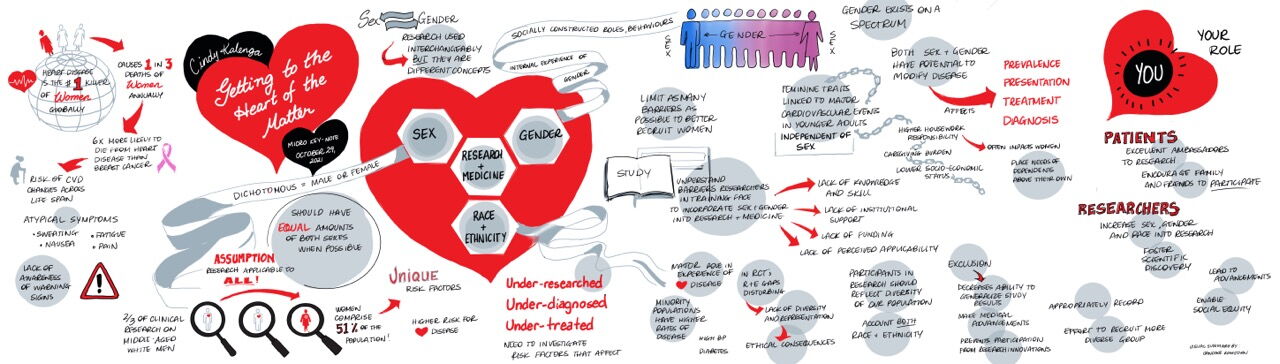 Cindy + Kalenga
Getting to the
Heart of the
Matter
MICRO KEY-NOTE
OCTOBER 29,
2021
HEART DISEASE
IS THE #1 KILLER
OF Women
GLOBALLY
CAUSES 1 IN 3
DEATHS OF
Women
ANNUALLY
6X MORE LIKELY TO
DIE FROM HEART
DISEASE THAN
BREAST CANCER
RISK OF CVD
CHANGES ACROSS
LIFE SPAN
ATYPICAL SYMPTOMS
• SWEATING
• NAUSEA
• FATIGUE
• PAIN
LACK OF
AWARENESS
OF WARNING
SIGNS
!
Sex
GENDER
RESEARCH USED
INTERCHANGEABLY
BUT THEY ARE
DIFFERENT CONCEPTS
SOCIALLY CONSTRUCTED ROLES, BEHAVIOURS
INTERNAL EXPERIENCE OF
GENDER
SEX
GENDER
RESEARCH
+
MEDICINE
RACE
+
ETHNICITY
DICHOTOMOUS = MALE OR FEMALE
SHOULD HAVE
EQUAL AMOUNTS
OF BOTH SEXES
WHEN POSSIBLE
ASSUMPTION
RESEARCH APPLICABLE TO
ALL!
2/3 OF CLINICAL
RESEARCH ON
MIDDLE-AGED
WHITE MEN
WOMEN
COMPRISE
51% OF THE
POPULATION!
UNIQUE
RISK FACTORS
HIGHER RISK FOR
DISEASE
Under-researched
Under-diagnosed
Under-treated
NEED TO INVESTIGATE
RISK FACTORS THAT AFFECT
SEX
GENDER
SEX
GENDER EXISTS ON A
SPECTRUM
LIMIT AS MANY
BARRIERS AS
POSSIBLE TO BETTER
RECRUIT WOMEN
FEMININE TRAITS
LINKED TO MAJOR
CARDIOVASCULAR EVENTS
IN YOUNGER ADULTS
INDEPENDENT OF
SEX
BOTH SEX + GENDER
HAVE POTENTIAL TO
MODIFY DISEASE
AFFECTS
PREVALENCE
PRESENTATION
TREATMENT
DIAGNOSIS
HIGHER HOUSEWORK
RESPONSIBILITY
CAREGIVING BURDEN
LOWER SOCIO-ECONOMIC
STATUS
OFTEN IMPACTS WOMEN
PLACE NEEDS OF
DEPENDENTS
ABOVE THEIR OWN
STUDY
UNDERSTAND
BARRIERS RESEARCHERS
IN TRAINING FACE
TO INCORPORATE SEX + GENDER
INTO RESEARCH + MEDICINE
LACK OF KNOWLEDGE
AND SKILL
LACK OF INSTITUTIONAL
SUPPORT
LACK OF FUNDING
LACK OF PERCEIVED APPLICABILITY
MAJOR ROLE IN
EXPERIENCE OF
DISEASE
MINORITY
POPULATIONS
HAVE HIGHER
RATES OF
DISEASE
HIGH BP
DIABETES
IN RCT's
R+E GAPS
DISTURBING
LACK OF DIVERSITY
AND REPRESENTATION
ETHICAL CONSEQUENCES
PARTICIPANTS IN
RESEARCH SHOULD
REFLECT DIVERSITY
OF OUR POPULATION
ACCOUNT BOTH
RACE + ETHNICITY
EXCLUSION
DECREASES ABILITY TO
GENERALIZE STUDY
RESULTS
MAKE MEDICAL
ADVANCEMENTS
PREVENTS PARTICIPATION
FROM RESEARCH INNOVATIONS
YOU
YOUR
ROLE
PATIENTS
EXCELLENT AMBASSADORS
TO RESEARCH
ENCOURAGE FAMILY
AND FRIENDS TO PARTICIPATE
RESEARCHERS
INCREASE SEX, GENDER
AND RACE INTO RESEARCH
FOSTER
SCIENTIFIC
DISCOVERY
LEAD TO
ADVANCEMENTS
APPROPRIATELY RECORD
ENABLE
SOCIAL EQUITY
EFFORT TO RECRUIT MORE
DIVERSE GROUP
VISUAL SUMMARY BY